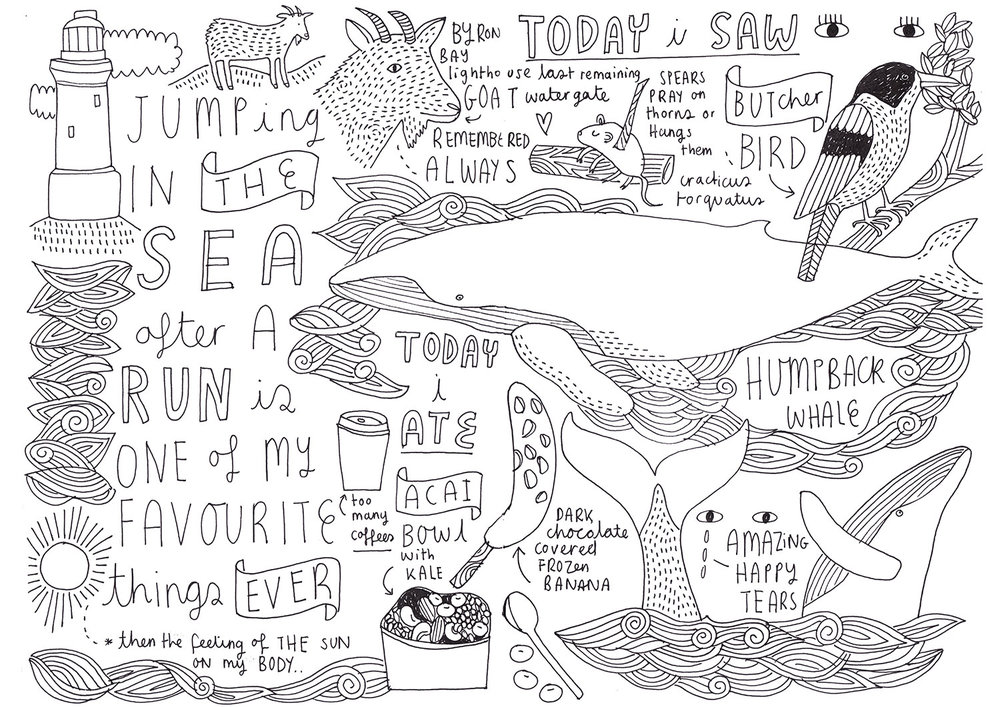 JUMPing
IN THE
SEA
after A
RUN is
ONE of MY
FAVOURITE
things EVER
* then the feeling of THE SUN
ON my BODY..
BYRON
BAY
lighthouse last remaining
GOAT watergate
REMEMBERED
ALWAYS
TODAY i SAW
SPEARS
PRAY on
thorns or
Hangs
them
BUTCHER
BIRD
cracticus
torquatus
HUMPBACK
WHALE
TODAY
i
ATE
too
many
coffees
ACAI
BOWl
with
KALE
DARK
chocolate
covered
FROZEN
BANANA
AMAZING
HAPPY
TEARS